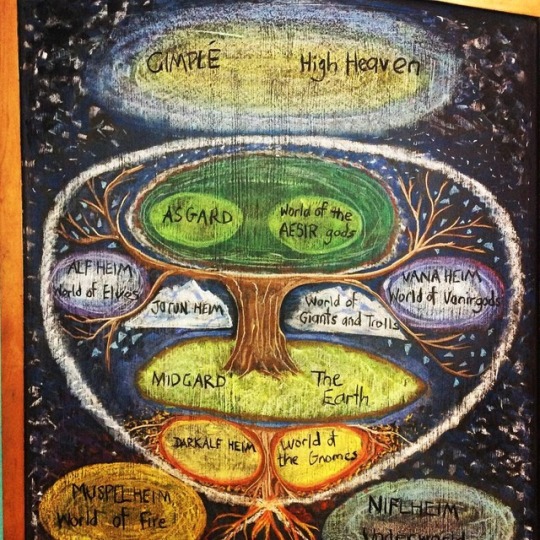 GIMPLE High Heaven
ASGARD
World of the
AESIR gods
ALF HEIM
World of Elves
VANA HEIM
World of Vanir gods
JOTUN HEIM
World of
Giants and Trolls
MIDGARD
The
Earth
DARKALF HEIM
World of
the Gnomes
MUSPELHEIM
World of Fire
NIFLHEIM
Underworld